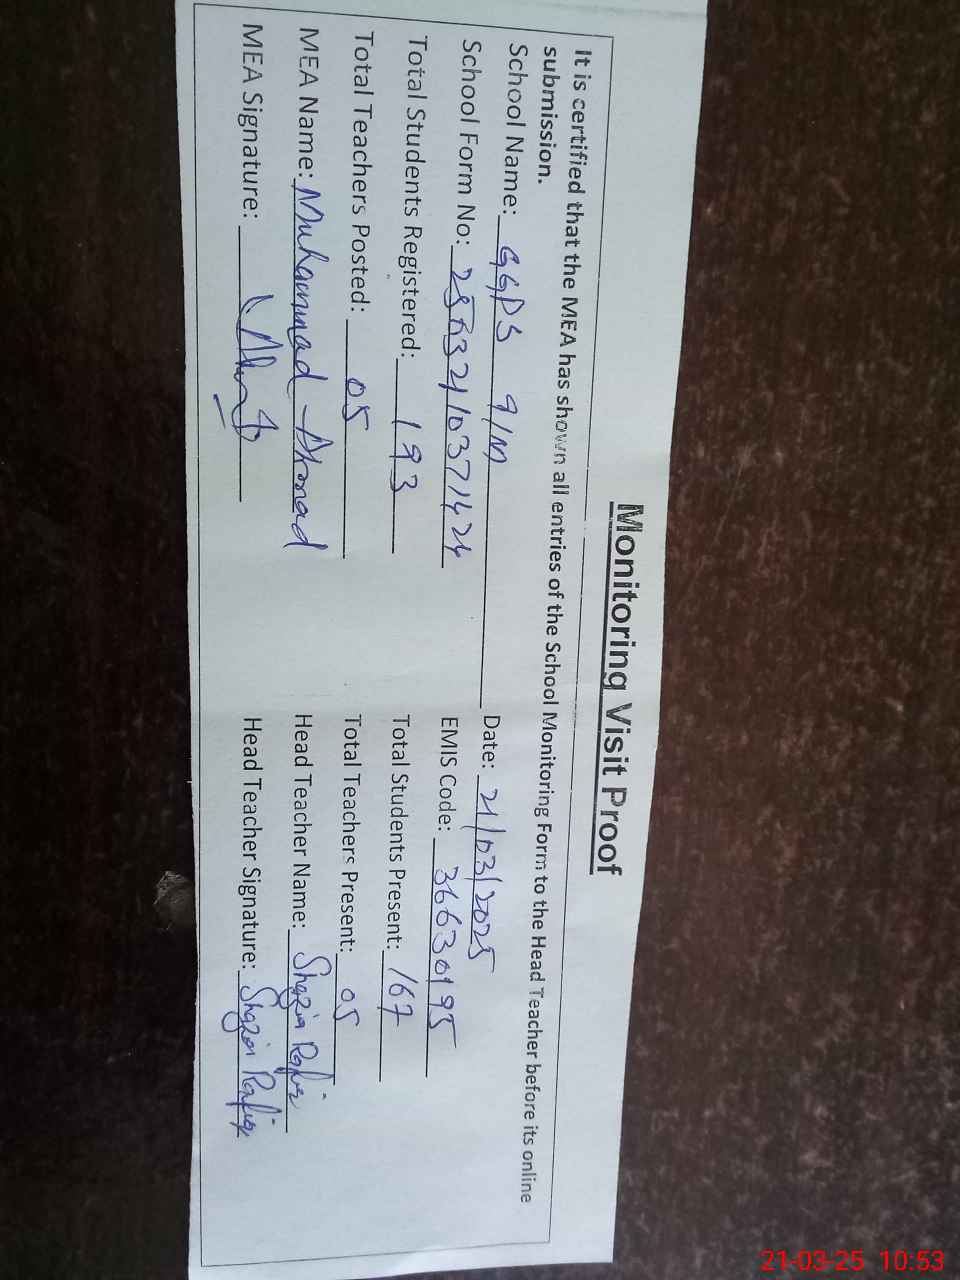 Monitoring Visit Proof
It is certified that the MEA has shown all entries of the School Monitoring Form to the Head Teacher before its online
submission.
School Name: GGPS 9/M Date: 21/03/2025
School Form No: EMIS Code: 36630195
Total Students Registered: 193 Total Students Present: 167
Total Teachers Posted: 05 Total Teachers Present: 05
MEA Name: Muhammad Head Teacher Name: Shazia Rafiq
MEA Signature: Head Teacher Signature: Shazia Rafiq
21-03-25 10:53